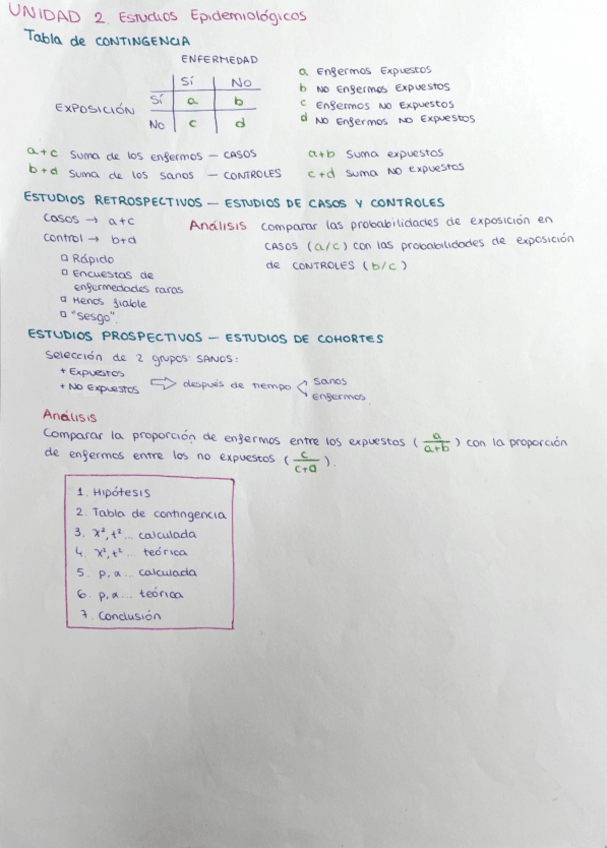 UNIDAD 2. Estudios Epidemiológicos
Tabla de CONTINGENCIA
ENFERMEDAD
Sí No
EXPOSICIÓN Sí a b
No c d
a Enfermos Expuestos
b NO Enfermos Expuestos
c Enfermos NO Expuestos
d NO Enfermos NO Expuestos
a+c Suma de los enfermos – CASOS
b+d Suma de los sanos – CONTROLES
a+b Suma expuestos
c+d Suma NO expuestos
ESTUDIOS RETROSPECTIVOS – ESTUDIOS DE CASOS Y CONTROLES
Casos → a+c
Control → b+d
Rápido
Encuestas de
enfermedades raras
Menos fiable
"Sesgo".
Análisis Comparar las probabilidades de exposición en
CASOS (a/c) con las probabilidades de exposición
de CONTROLES (b/c)
ESTUDIOS PROSPECTIVOS – ESTUDIOS DE COHORTES
Selección de 2 grupos SANOS:
+ Expuestos
+ NO Expuestos ⇒ después de tiempo < Sanos
Enfermos
Análisis
Comparar la proporción de enfermos entre los expuestos (a/a+b) con la proporción
de enfermos entre los no expuestos (c/c+d).
1. Hipótesis
2. Tabla de contingencia
3. x², t²... calculada
4. x², t²... teórica
5. p, α... calculada
6. p, α... teórica
7. Conclusión